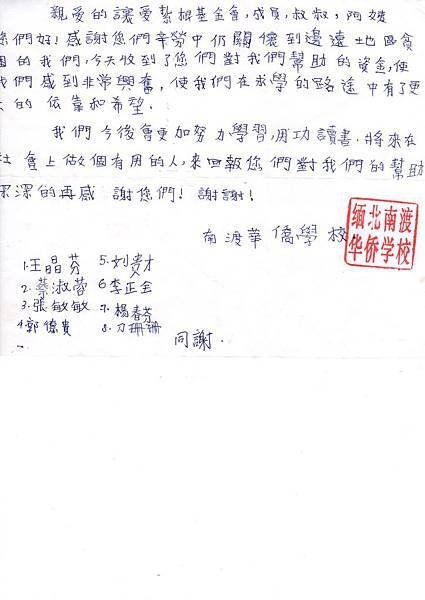 親愛的讓愛紮根基金會，成員，叔叔，阿姨
您們好！感謝您們辛勞中仍關懷到邊遠地區貧
困的我們，今天收到了您們對我們幫助的資金，使
我們感到非常興奮，使我們在求學的路途中有了更
大的依靠和希望．
我們今後會更加努力學習，用功讀書．將來在
社會上做個有用的人，來回報您們對我們的幫助
深深的再感謝您們！謝謝！
南渡華僑學校
缅北南渡
华侨学校
1.王晶芬 5.刘贵才
2.蔡淑蓉 6李正全
3.張敏敏 7.楊春芬
4郭德貴 8.刀珊珊
同謝．